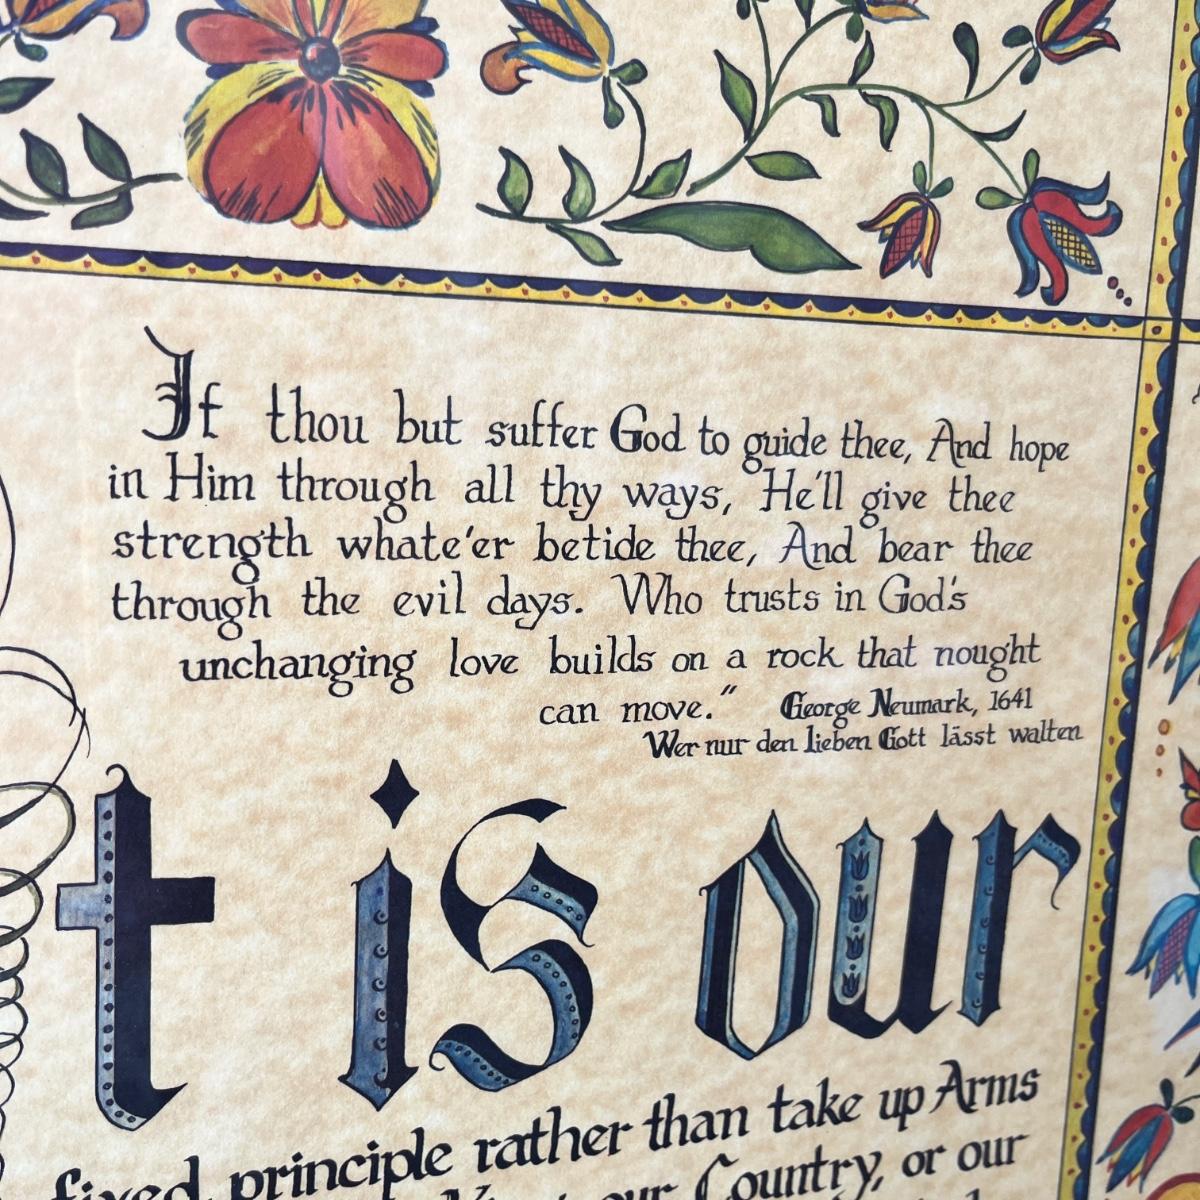 If thou but suffer God to guide thee, And hope
in Him through all thy ways, He'll give thee
strength whate'er betide thee, And bear thee
through the evil days. Who trusts in God's
unchanging love builds on a rock that nought
can move." George Neumark, 1641
Wer nur den lieben Gott lässt walten
t is our
fixed principle rather than take up Arms
our Country, or our